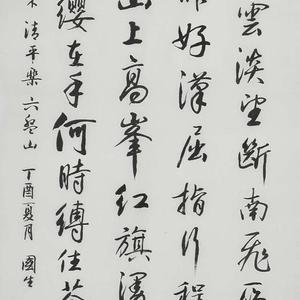 雲淡望斷南飛
非好漢屈指行程
山上高峯紅旗漫
纓在手何時縛住蒼
清平樂六盤山 丁酉夏月 國生